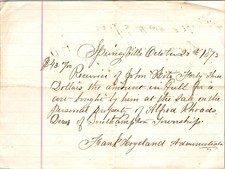 Springville October 20th 1873
$43.00
Received of John Forty Three
Dollars the amount in full for a
cow bought by him at the sale of the
Personal Property of Alfred Rhoads
of Southampton Township
Frank Hogeland Administrator